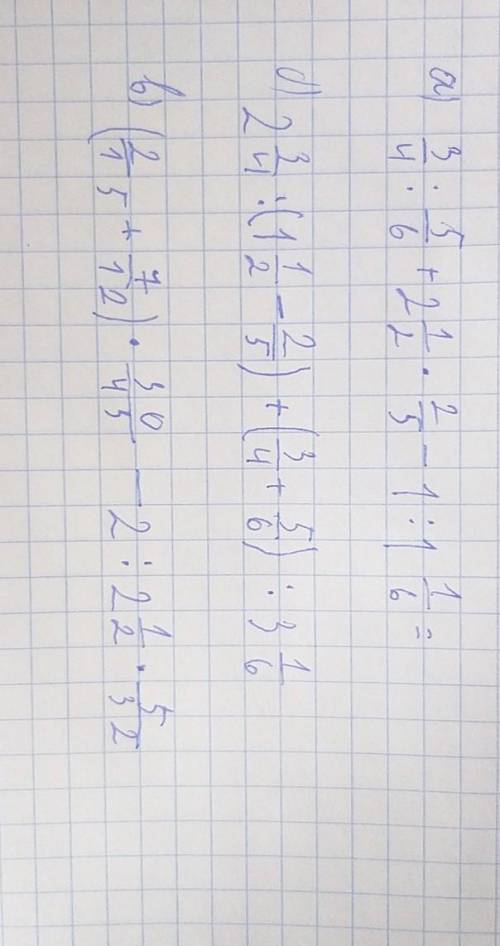 а) 3/4 · 5/6 + 2 1/2 · 2/5 − 1 : 1 1/6 =
б) 2 3/4 : (1 1/2 − 2/5) + (3/4 + 5/6) : 3 1/6
в) (2/15 + 7/12) · 30/45 − 2 : 2 1/2 · 5/32